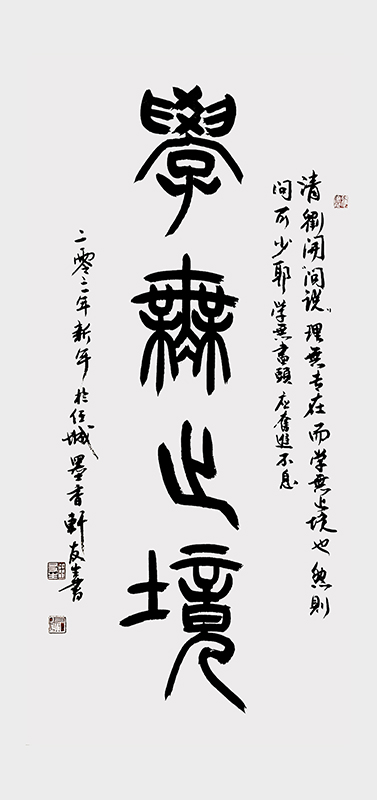 清劉開“问説”理無专在而学無止境也然則
问可少耶学無盡頭应奮進不息
學無止境
二零二年新年於任城墨香軒友生書